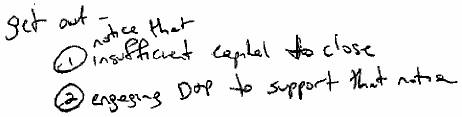 get out -
notice that
① insufficient capital to close
② engaging D&P to support that notice